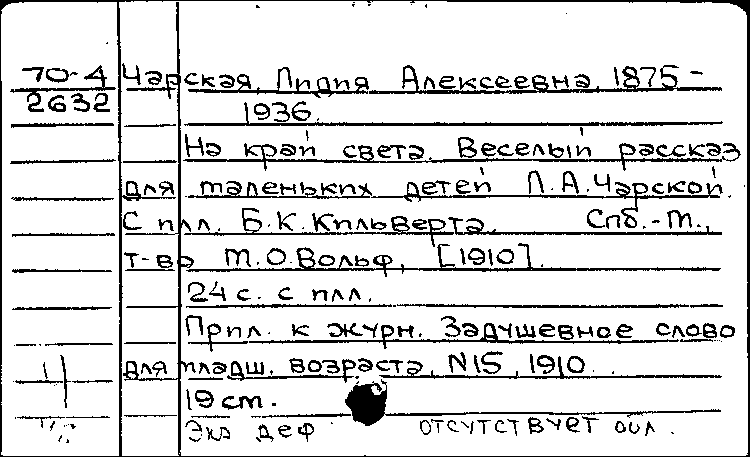 70-4 Чарская, Лидия Алексеевна, 1875-
2632 1936.
На край света. Веселый рассказ
для маленьких детей Л.А.Чарской.
С илл. Б.К.Кильверта. Спб.-М.,
т-во М.О.Вольф, [1910].
24 с. с илл.
Прил. к журн. Задушевное слово
для младш. возраста, N15, 1910.
19 см.
Экз деф. отсутствует обл.